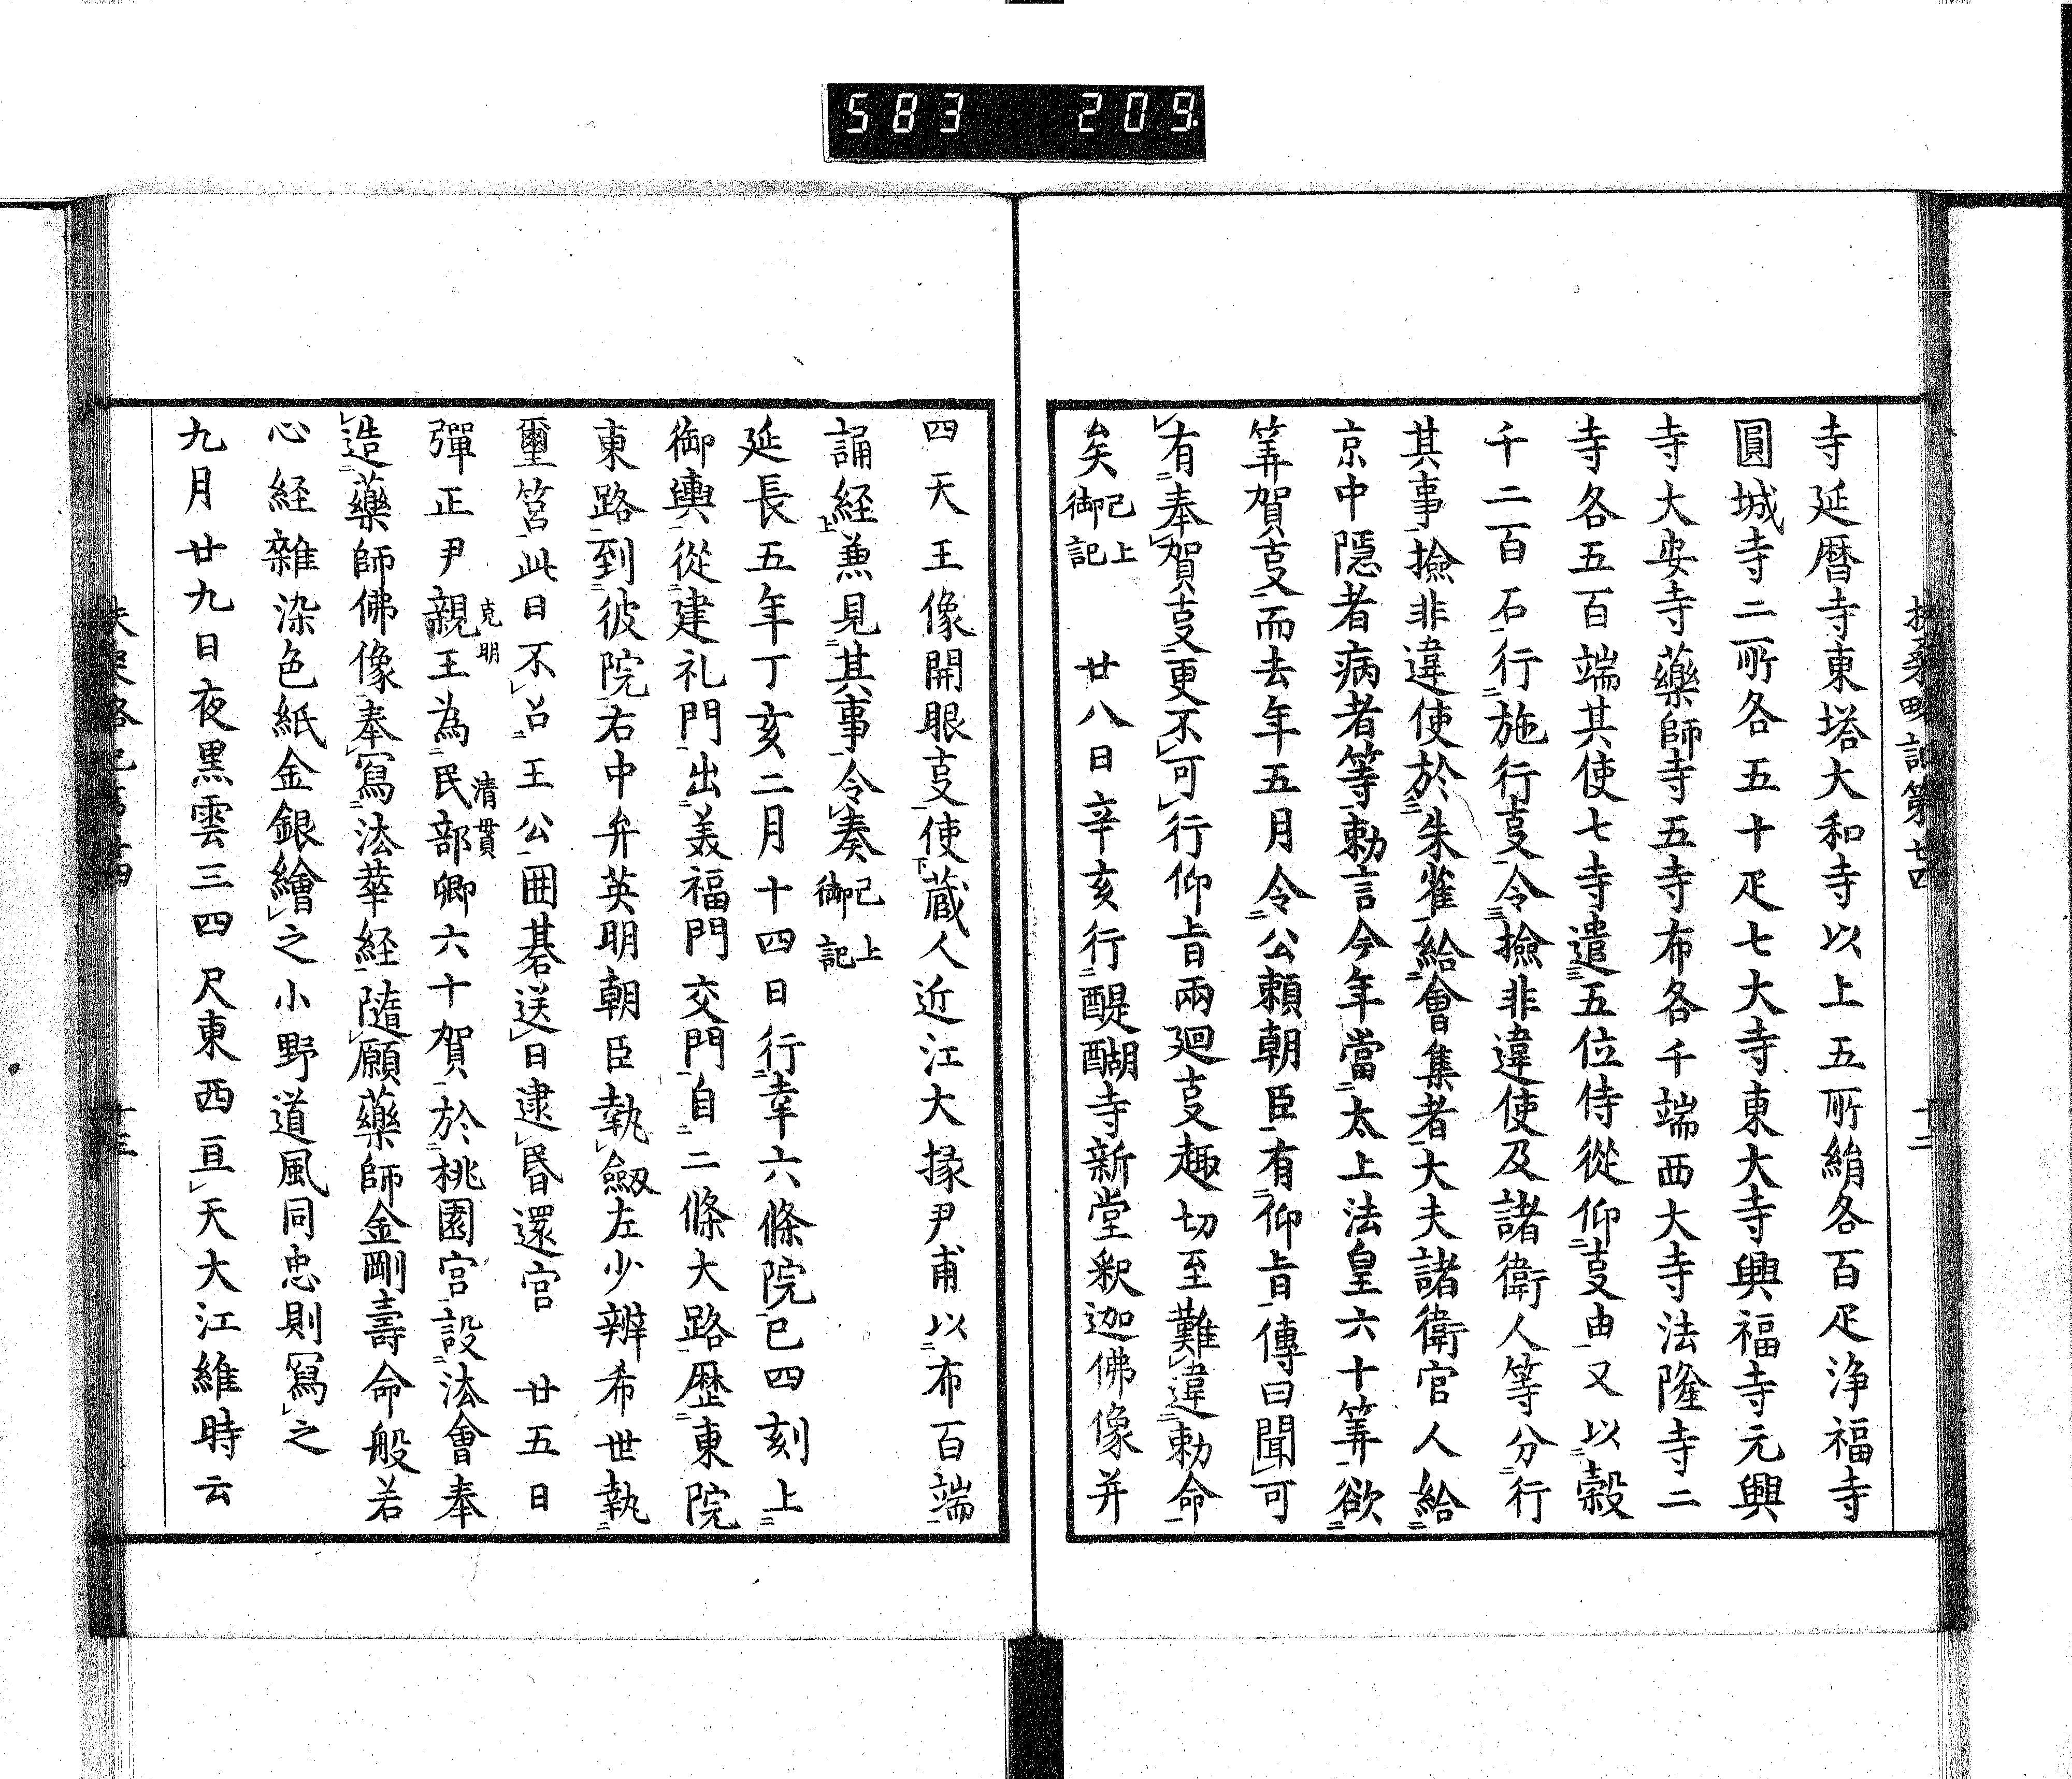 583 209
扶桑略記第廿四 十二
寺延暦寺東塔大和寺以上五所絹各百疋浄福寺
圓城寺二所各五十疋七大寺東大寺興福寺元興
寺大安寺藥師寺五寺布各千端西大寺法隆寺二
寺各五百端其使七寺遣五位侍從仰叓由又以穀
千二百石行施行叓令撿非違使及諸衛人等分行
其事撿非違使於朱雀給會集者大夫諸衛官人給
京中隠者病者等勅言今年當太上法皇六十筭欲
筭賀叓而去年五月令公頼朝臣有仰旨傳曰聞可
有奉賀叓更不可行仰旨兩廻叓趣切至難違勅命
矣已上御記 廿八日辛亥行醍醐寺新堂釈迦佛像并
四天王像開眼叓使蔵人近江大掾尹甫以布百端
誦経兼見其事令奏已上御記
延長五年丁亥二月十四日行幸六條院已四刻上
御輿從建礼門出美福門交門自二條大路歴東院
東路到彼院右中弁英明朝臣執劔左少辨希世執
璽筥此日不召王公囲碁送日逮昏還宮 廿五日
彈正尹親王克明為民部卿清貫六十賀於桃園宮設法會奉
造藥師佛像奉寫法華経隨願藥師金剛壽命般若
心経雜染色紙金銀繪之小野道風同忠則寫之
九月廿九日夜黒雲三四尺東西亘天大江維時云